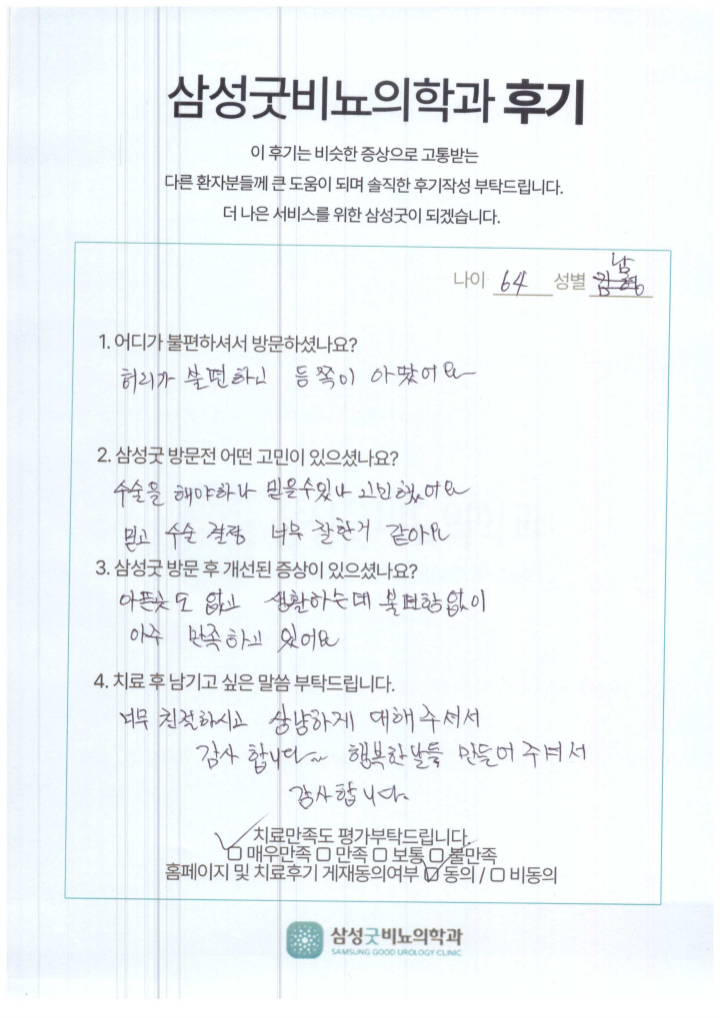 삼성굿비뇨의학과 후기
이 후기는 비슷한 증상으로 고통받는
다른 환자분들께 큰 도움이 되며 솔직한 후기작성 부탁드립니다.
더 나은 서비스를 위한 삼성굿이 되겠습니다.
남
나이 64 성별
1. 어디가 불편하셔서 방문하셨나요?
허리가 불편하고 등쪽이 아팠어요
2. 삼성굿 방문전 어떤 고민이 있으셨나요?
수술을 해야하나 믿을수있나 고민했어요
믿고 수술 결정 너무 잘한거 같아요
3. 삼성굿 방문 후 개선된 증상이 있으셨나요?
아픈곳도 없고 생활하는데 불편함없이
아주 만족하고 있어요
4. 치료 후 남기고 싶은 말씀 부탁드립니다.
너무 친절하시고 상냥하게 대해주셔서
감사합니다~ 행복한날들 만들어주셔서
감사합니다.
치료만족도 평가부탁드립니다.
매우만족 만족 보통 불만족
홈페이지 및 치료후기 게재동의여부 동의 / 비동의
삼성굿비뇨의학과
SAMSUNG GOOD UROLOGY CLINIC